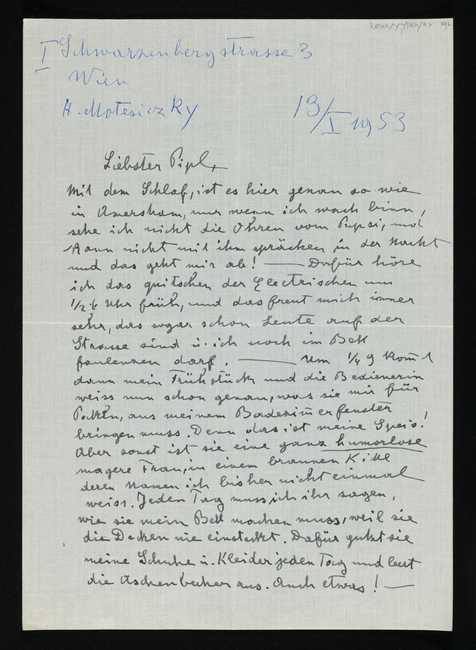 I Schwarzenbergstrasse 3
Wien
H. Motesiczky
13/I 1953
Liebster Pipl,
Mit dem Schlaf, ist es hier genau so wie
in Amersham, nur wenn ich wach binn,
sehe ich nicht die Ohren vom Pipsi, und
kann nicht mit ihm sprächen in der Nacht
und das geht mir ab! — Dafür höre
ich das quitschen der Electrischen um
½ 6 Uhr früh, und das freut mich immer
sehr, das sogar schon Leute auf der
Strasse sind u. ich noch im Bett
faulenzen darf. — Um ¼ 9 kommt
dann mein Frühstück und die Bedienerin
weiss nun schon genau, was sie mir für
aus meinem Badezimerfenster
bringen muss. Denn das ist meine Speis!
Aber sonst ist sie eine ganz humorlose
magere Frau, in einem braunen Kittl
deren Namen ich bisher nicht einmal
weiss. Jeden Tag muss ich ihr sagen,
wie sie mein Bett machen muss, weil sie
die Decken nie einsteckt. Dafür putzt sie
meine Schuhe u. Kleider jeden Tag und leert
die Aschenbecher aus. Auch etwas! —